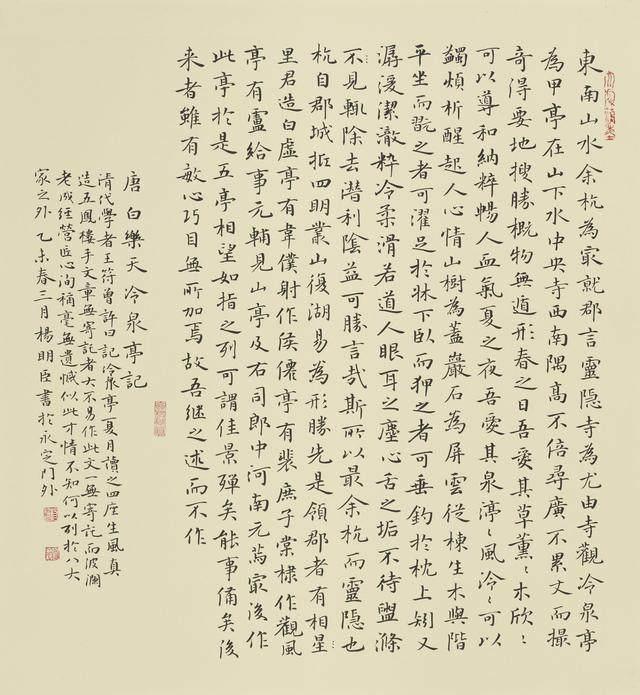 東南山水余杭為冣就郡言靈隱寺為尤由寺觀冷泉亭
為甲亭在山下水中央寺西南隅高不倍尋廣不累丈而撮
奇得要地搜勝概物無遁形春之日吾愛其草薰ゝ木欣ゝ
可以導和納粹暢人血氣夏之夜吾愛其泉渟ゝ風泠ゝ可以
蠲煩析酲起人心情山樹為蓋巖石為屏雲從棟生水與階
平坐而翫之者可濯足於牀下臥而狎之者可垂釣於枕上矧又
潺湲潔澈粹冷柔滑若道人眼耳之塵心舌之垢不待盥滌
不見輒除去潛利陰益可勝言哉斯所以最余杭而靈隱也
杭自郡城抵四明叢山復湖易為形勝先是領郡者有相星
里君造白虛亭有韋僕射作侯僊亭有裴庶子棠棣作觀風
亭有盧給事元輔見山亭及右司郎中河南元藇冣後作
此亭於是五亭相望如指之列可謂佳景殫矣能事備矣後
来者雖有敏心巧目無所加焉故吾继之述而不作
唐白樂天冷泉亭記
清代學者王符曾評曰記冷泉亭夏月讀之四座生風真
造五鳳樓手文章無寄託者大不易作此文一無寄託而波瀾
老成经營匠心洵稱毫無遺憾似此才情不知何以列於八大
家之外乙未春三月楊明臣書於永定門外